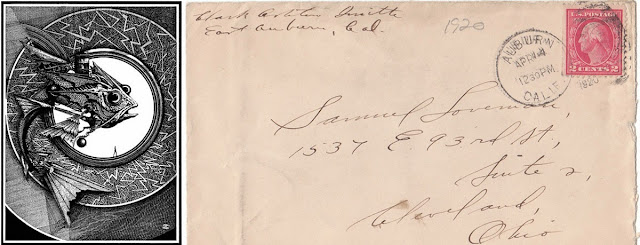 Clark Ashton Smith
East Auburn, Cal.
1920
AUBURN
APR
12 30 PM
CALIF.
1920
U.S. POSTAGE
2 CENTS 2
Samuel Loveman,
1537 E. 93rd St,
Suite 2,
Cleveland,
Ohio